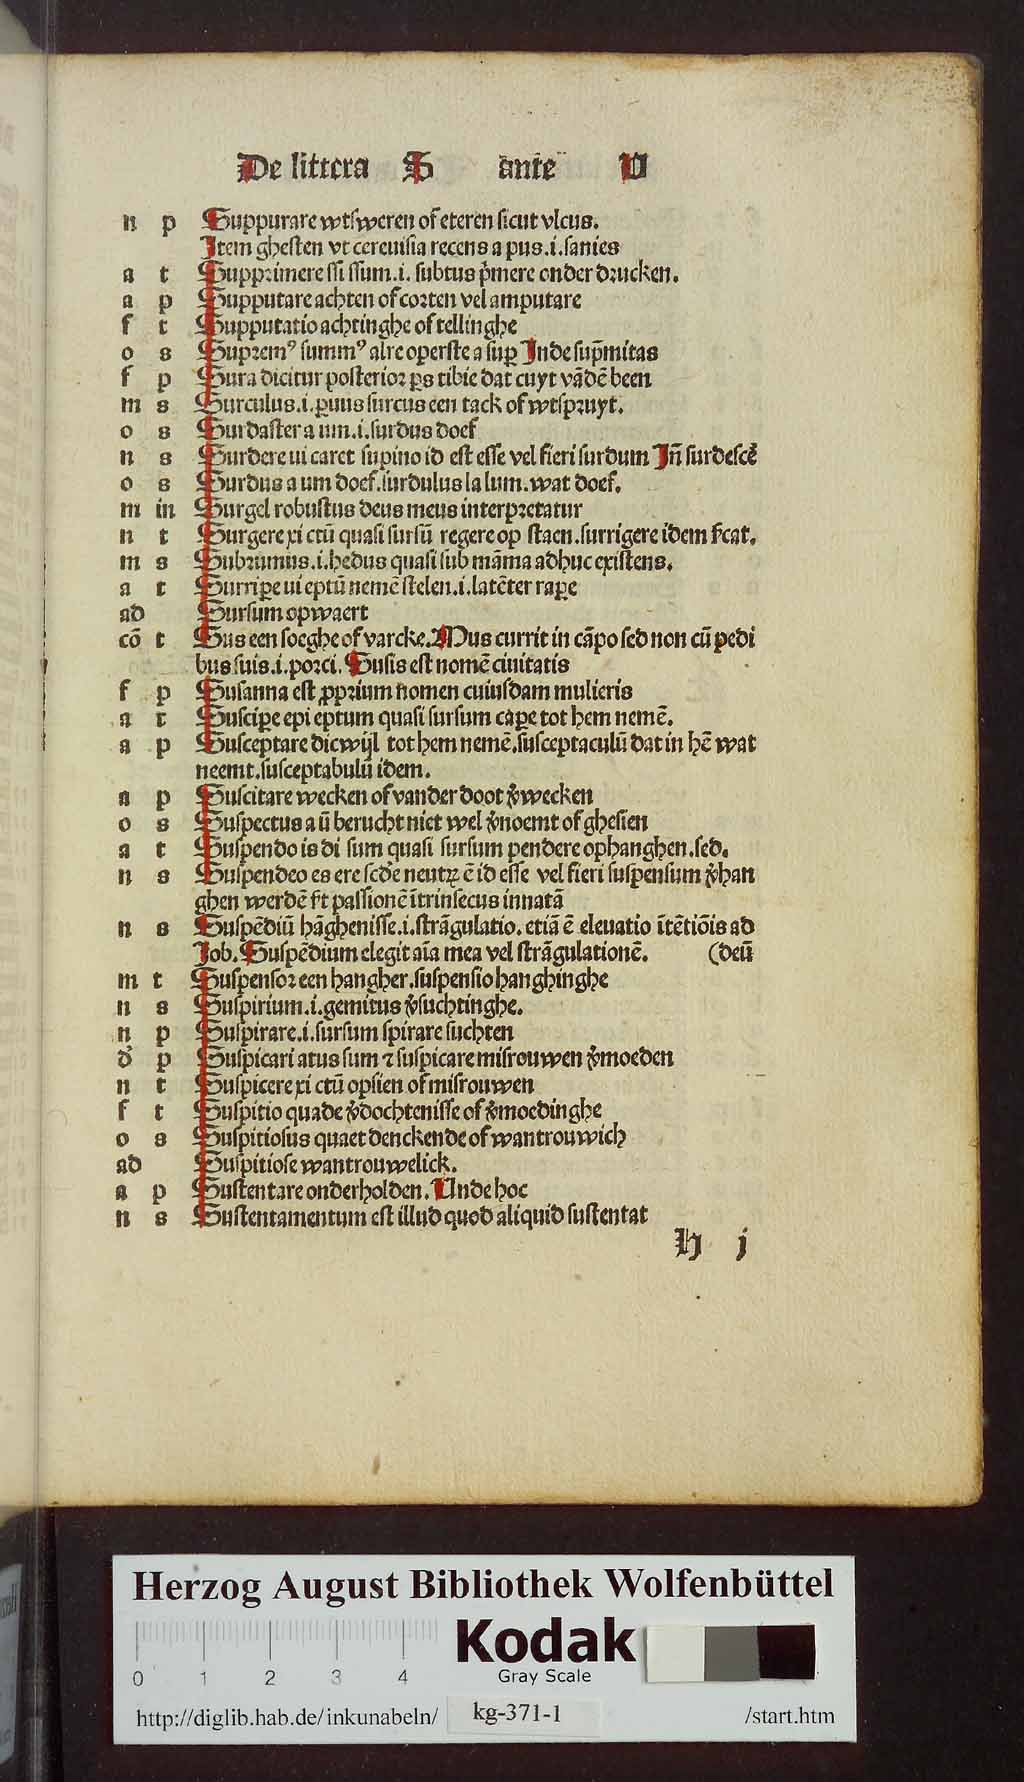 De littera S ante U
n p Suppurare wtsweren of eteren sicut vlcus.
Item ghesten vt cereuisia recens a pus .i. sanies
a t Supprimere ssi ssum .i. subtus p̄mere onder drucken.
a p Supputare achten of corten vel amputare
f t Supputatio achtinghe of tellinghe
o s Supremꝰ summꝰ alre operste a suꝑ Inde sup̄mitas
f p Sura dicitur posterior ꝑs tibie dat cuyt vādē been
m s Surculus .i. ꝑuus surcus een tack of wtspruyt.
o s Surdaster a um .i. surdus doef
n s Surdere ui caret supino id est esse vel fieri surdum Iñ surdescē
o s Surdus a um doef. surdulus la lum. wat doef.
m in Surgel robustus deus meus interpretatur
n t Surgere xi ctū quasi sursū regere op staen. surrigere idem sīcat.
m s Subrumus .i. hedus quasi sub māma adhuc existens.
a t Surriꝑe ui eptū nemē stelen .i. latēter raꝑe
ad Sursum opwaert
cō t Sus een soeghe of varcke. Mus currit in cāpo sed non cū pedi
bus suis .i. porci. Susis est nomē ciuitatis
f p Susanna est ꝓprium nomen cuiusdam mulieris
a t Susciꝑe epi eptum quasi sursum caꝑe tot hem nemē.
a p Susceptare dicwijl tot hem nemē. susceptaculū dat in hē wat
neemt. susceptabulū idem.
a p Suscitare wecken of vander doot v̉wecken
o s Suspectus a ū berucht niet wel v̉noemt of ghesien
a t Suspendo is di sum quasi sursum pendere ophanghen. sed.
n s Suspendeo es ere scḋe neutꝝ ē id esse vel fieri suspensum v̉han
ghen werdē s̄t passionē ītrinsecus innatā
n s Suspēdiū hāghenisse .i. strāgulatio. etiā ē eleuatio ītētiōis ad
Job. Suspēdium elegit aīa mea vel strāgulationē. (deū
m t Suspensor een hangher. suspensio hanghinghe
n s Suspirium .i. gemitus v̉suchtinghe.
n p Suspirare .i. sursum spirare suchten
d̉ p Suspicari atus sum ⁊ suspicare misrouwen v̉moeden
n t Suspicere xi ctū opsien of misrouwen
f t Suspitio quade v̉dochtenisse of v̉moedinghe
o s Suspitiosus quaet denckende of wantrouwich
ad Suspitiose wantrouwelick.
a p Sustentare onderholden. Unde hoc
n s Sustentamentum est illud quod aliquid sustentat
H j
Herzog August Bibliothek Wolfenbüttel
Kodak
0 1 2 3 4
Gray Scale
http://diglib.hab.de/inkunabeln/ kg-371-1 /start.htm